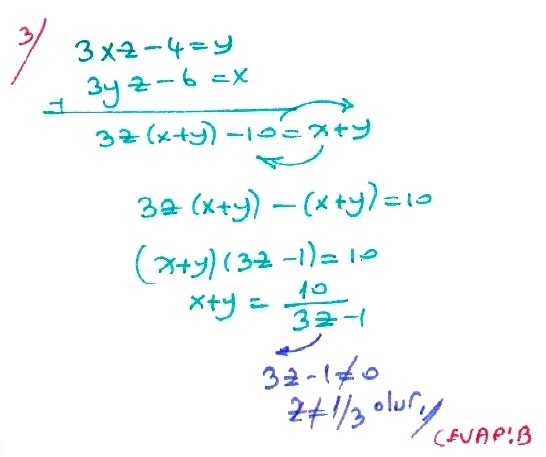 3/
3xz-4=y
3yz-6=x
+
3z(x+y)-10=x+y
3z(x+y)-(x+y)=10
(x+y)(3z-1)=10
x+y=10/3z-1
3z-1≠0
z≠1/3 olur,
CEVAP:B